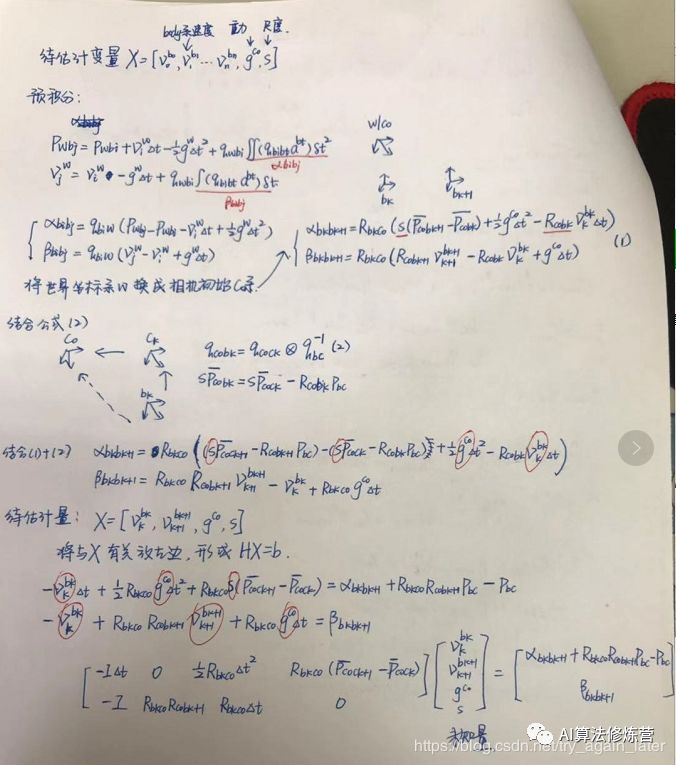 body系速度 重力 尺度.
待估计变量 X=[v₀^b₀, v₁^b₁ ... vₙ^bₙ, g^c₀, s]
预积分:
P_wbj = P_wbi + v_i^w Δt - ½g^wΔt² + q_wbi ∬(q_bibt a^bt)δt²
α_bibj
v_j^w = v_i^w - g^wΔt + q_wbi ∫(q_bibt a^bt)δt
β_bibj
w/c₀
bk bk+1
α_bibj = q_biw (P_wbj - P_wbi - v_i^wΔt + ½g^wΔt²)
β_bibj = q_biw (v_j^w - v_i^w + g^wΔt)
α_bkbk+1 = R_bkc₀ (s(P̄_c₀bk+1 - P̄_c₀bk) + ½g^c₀Δt² - R_c₀bk v_k^bk Δt)
β_bkbk+1 = R_bkc₀ (R_c₀bk+1 v_k+1^bk+1 - R_c₀bk v_k^bk + g^c₀Δt)
(1)
将世界坐标系w换成相机初始c₀系.
结合公式(2)
c₀ ck
bk
q_c₀bk = q_c₀ck ⊗ q_bc^-1 (2)
sP̄_c₀bk = sP̄_c₀ck - R_c₀bk P_bc
结合(1)+(2) α_bkbk+1 = R_bkc₀ ((sP̄_c₀ck+1 - R_c₀bk+1 P_bc) - (sP̄_c₀ck - R_c₀bk P_bc) + ½g^c₀Δt² - R_c₀bk v_k^bk Δt)
β_bkbk+1 = R_bkc₀ R_c₀bk+1 v_k+1^bk+1 - v_k^bk + R_bkc₀ g^c₀Δt
待估计量: X=[v_k^bk, v_k+1^bk+1, g^c₀, s]
将与X有关放左边, 形成 HX=b.
-v_k^bk Δt + ½R_bkc₀ g^c₀Δt² + R_bkc₀ s(P̄_c₀ck+1 - P̄_c₀ck) = α_bkbk+1 + R_bkc₀R_c₀bk+1 P_bc - P_bc
-v_k^bk + R_bkc₀ R_c₀bk+1 v_k+1^bk+1 + R_bkc₀ g^c₀Δt = β_bkbk+1
[-IΔt 0 ½R_bkc₀Δt² R_bkc₀(P̄_c₀ck+1 - P̄_c₀ck)] [v_k^bk v_k+1^bk+1 g^c₀ s] = [α_bkbk+1 + R_bkc₀R_c₀bk+1 P_bc - P_bc]
[-I R_bkc₀R_c₀bk+1 R_bkc₀Δt 0] [β_bkbk+1]
AI算法修炼营
https://blog.csdn.net/try_again_later